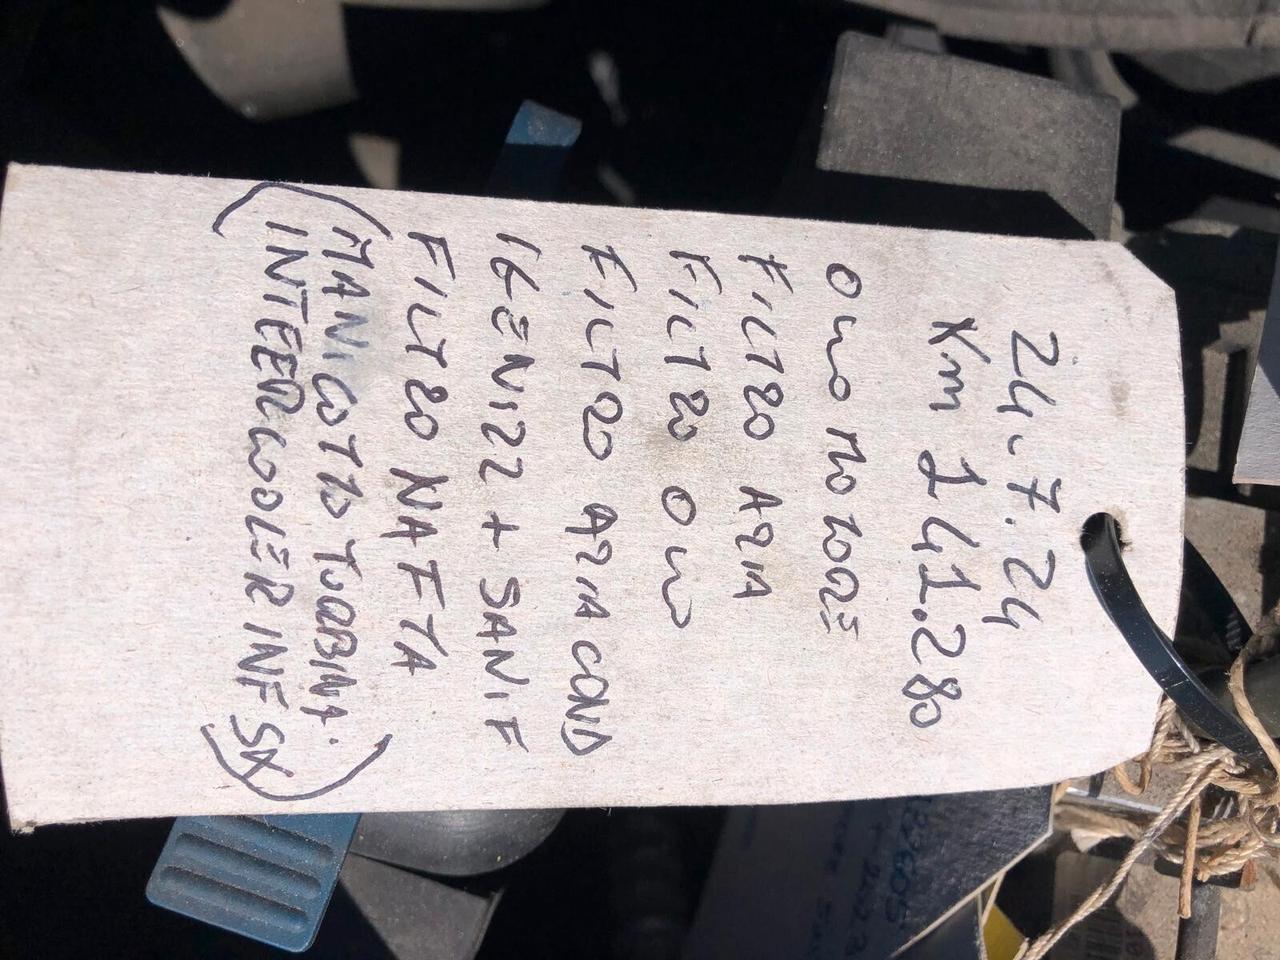 24.7.24
Km 141.280
OLIO MOTORE
FILTRO ARIA
FILTRO OLIO
FILTRO ARIA COND
IGENIZZ + SANIF
FILTRO NAFTA
(MANICOTTO TURBINA
INTERCOOLER INF SX)